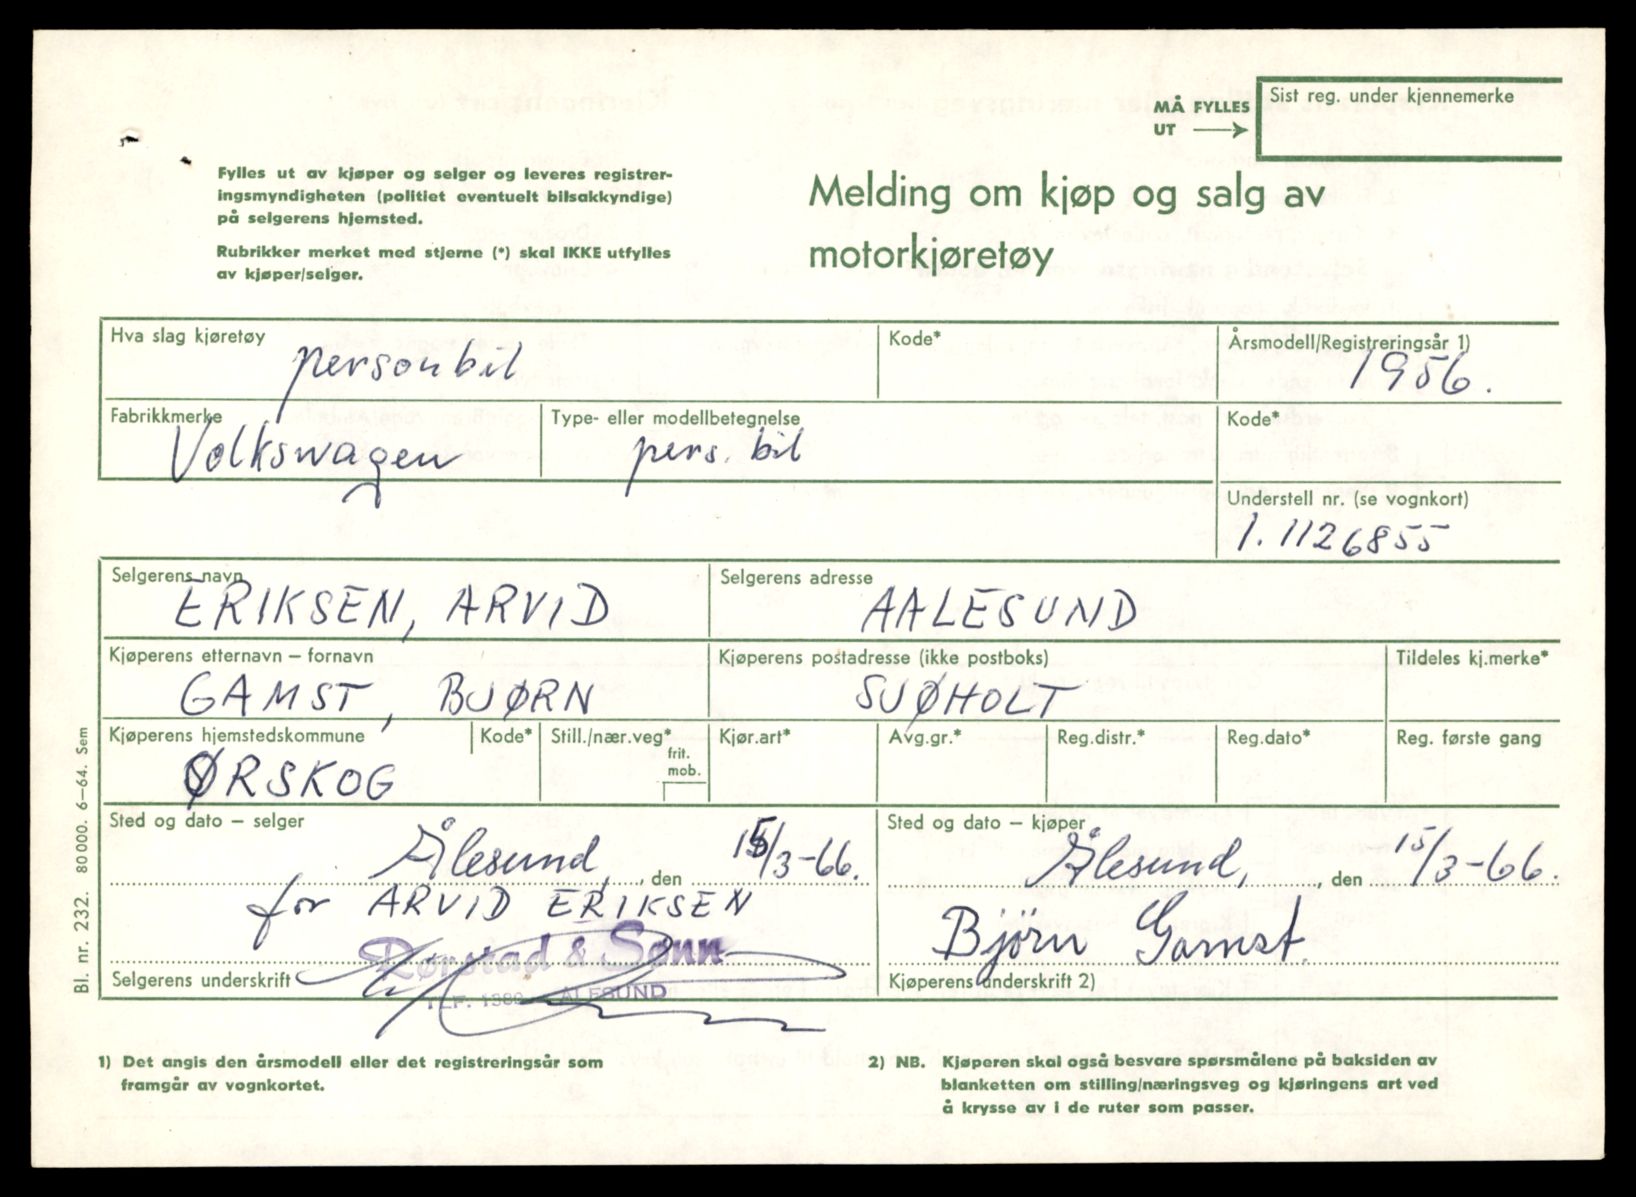 MÅ FYLLES UT →
Sist reg. under kjennemerke
Fylles ut av kjøper og selger og leveres registrer-
ingsmyndigheten (politiet eventuelt bilsakkyndige)
på selgerens hjemsted.
Rubrikker merket med stjerne (*) skal IKKE utfylles
av kjøper/selger.
Melding om kjøp og salg av
motorkjøretøy
Hva slag kjøretøy
personbil
Kode*
Årsmodell/Registreringsår 1)
1956.
Fabrikkmerke
Volkswagen
Type- eller modellbetegnelse
pers. bil
Kode*
Understell nr. (se vognkort)
1.1126855
Selgerens navn
ERIKSEN, ARVID
Selgerens adresse
AALESUND
Kjøperens etternavn – fornavn
GAMST, BJØRN
Kjøperens postadresse (ikke postboks)
SJØHOLT
Tildeles kj.merke*
Kjøperens hjemstedskommune
ØRSKOG
Kode*
Still./nær.veg*
frit.
mob.
Kjør.art*
Avg.gr.*
Reg.distr.*
Reg.dato*
Reg. første gang
Sted og dato – selger
Ålesund, den 15/3-66.
for ARVID ERIKSEN
Rørstad & Sønn
TLF. 1389 ÅLESUND
Selgerens underskrift
Sted og dato – kjøper
Ålesund, den 15/3-66.
Bjørn Gamst.
Kjøperens underskrift 2)
Bl. nr. 232. 80000. 6–64. Sem
1) Det angis den årsmodell eller det registreringsår som
framgår av vognkortet.
2) NB. Kjøperen skal også besvare spørsmålene på baksiden av
blanketten om stilling/næringsveg og kjøringens art ved
å krysse av i de ruter som passer.